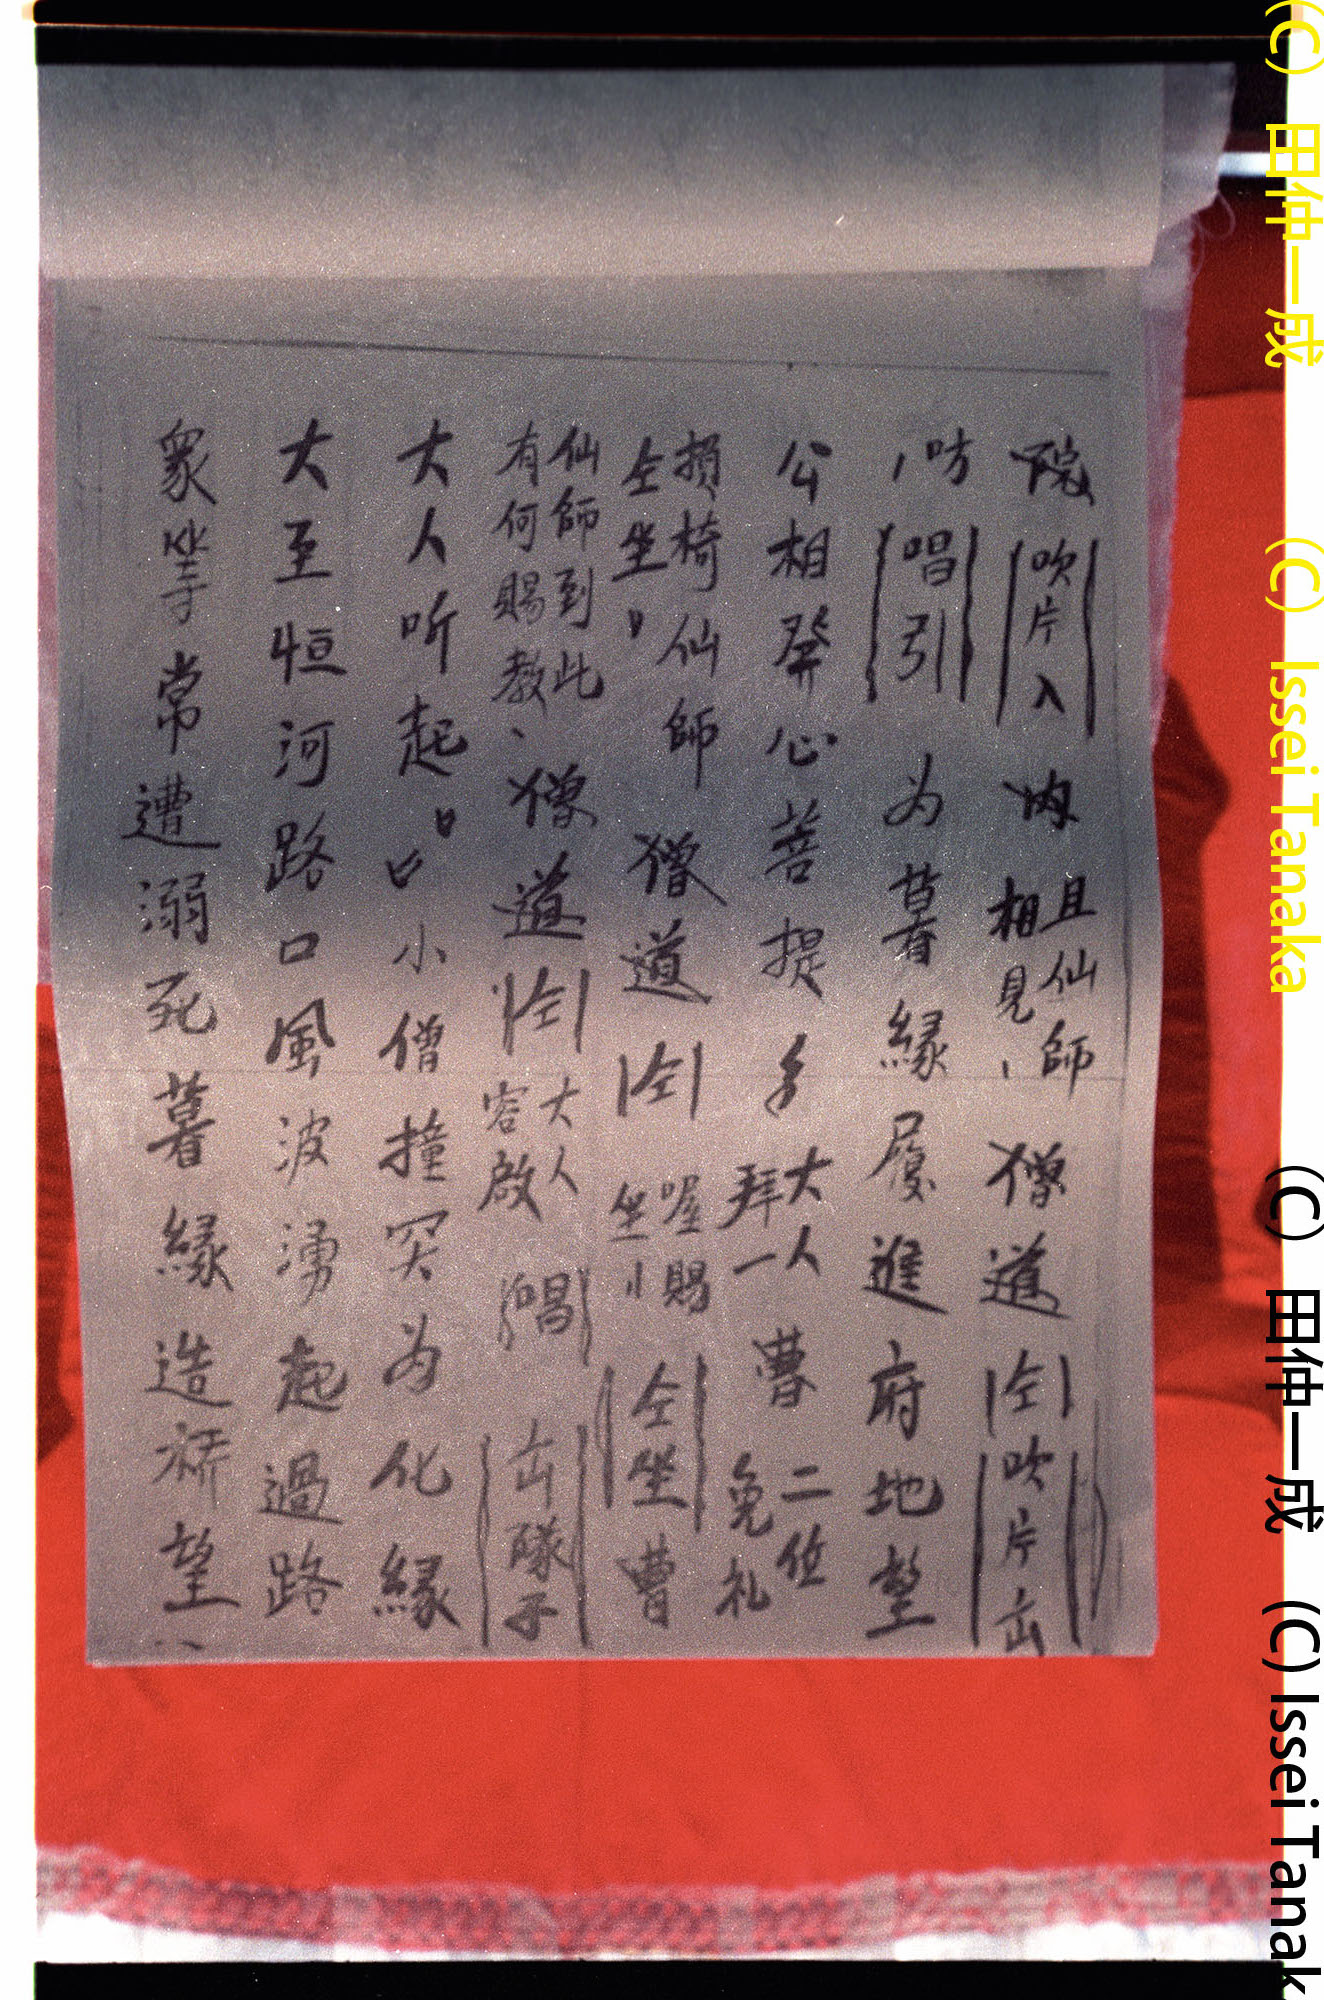 院 吹片入 内 且仙師相見、 僧道 仝 吹片出
吶、 唱引 为暮緣履進府地堂
公相發心菩提多 大人拜一 曹 二位免札
損椅仙師仝坐〃 僧道 仝 喔賜坐〃 仝坐 曹
仙師到此有何賜教、 僧道 仝 大人容啟 唱 出隊子
大人听起〃口小僧撞突为化緣
大至恒河路口風波湧起過路
衆等常遭溺死暮緣造桥望
(C) 田仲一成 (C) Issei Tanaka (C) 田仲一成 (C) Issei Tanak